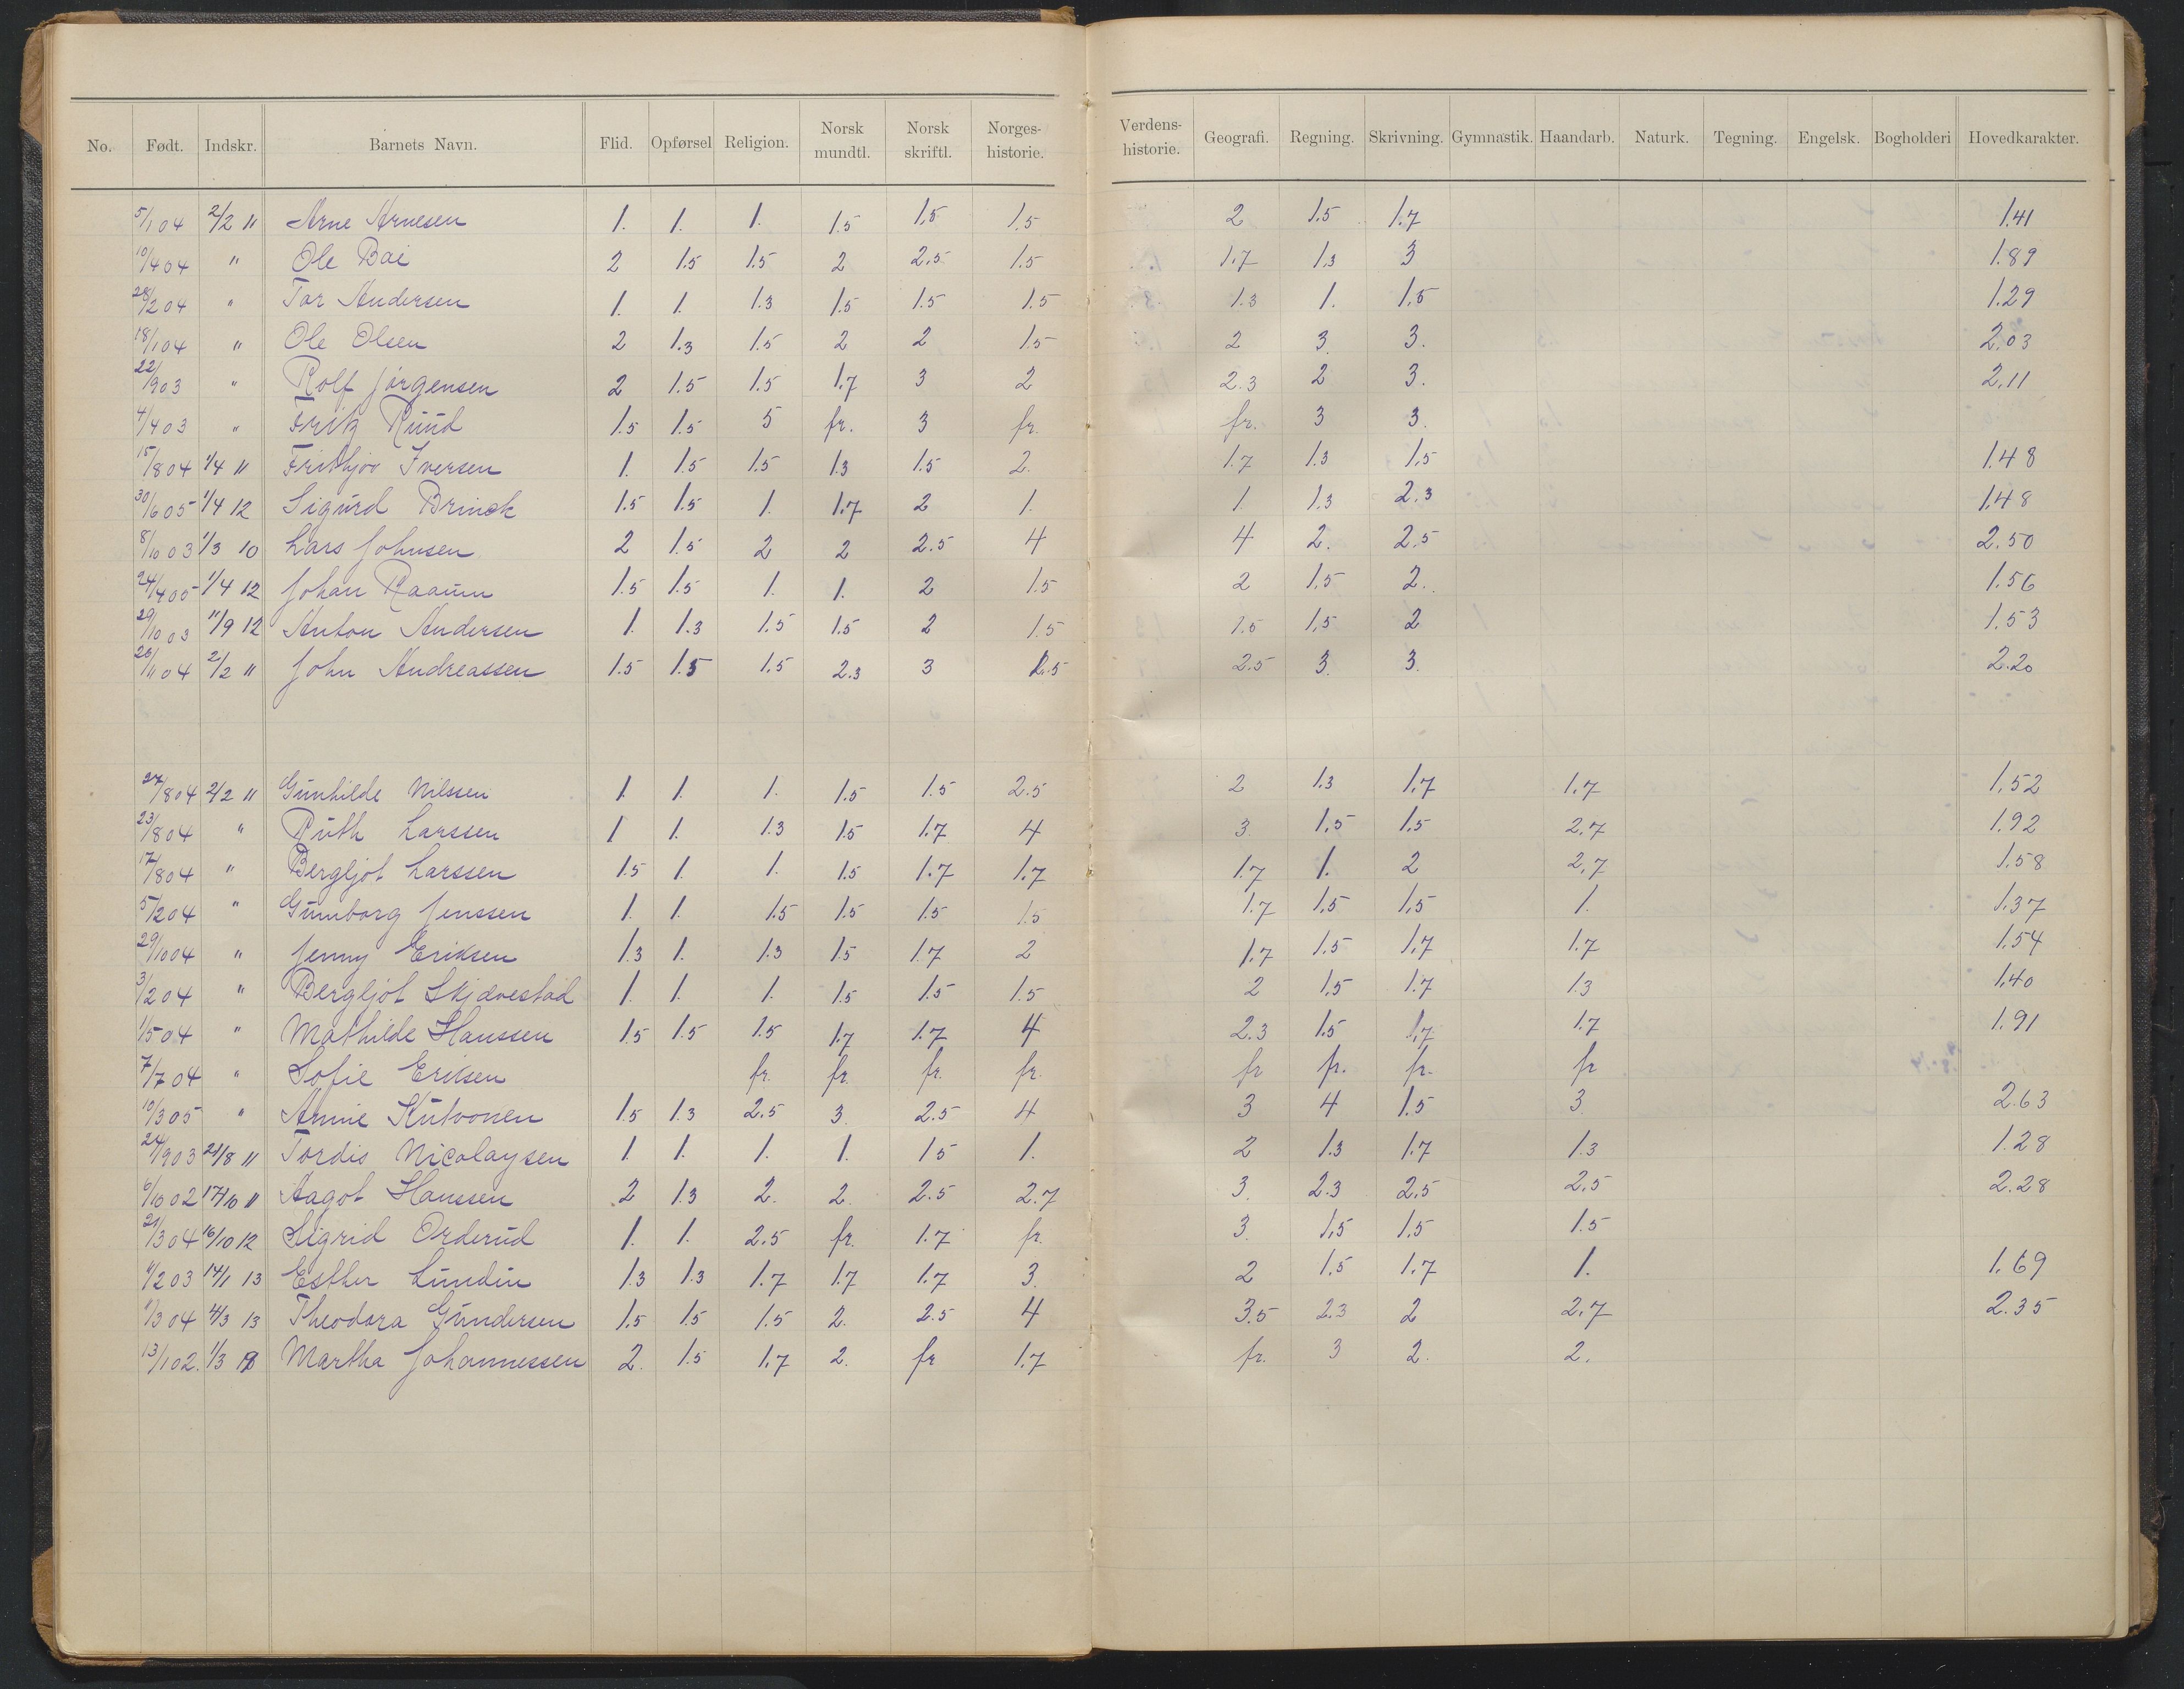 No. Født. Indskr. Barnets Navn. Flid. Opførsel Religion. Norsk mundtl. Norsk skriftl. Norges-historie. Verdens-historie. Geografi. Regning. Skrivning. Gymnastik. Haandarb. Naturk. Tegning. Engelsk. Bogholderi Hovedkarakter.
5/1 04 2/2 11 Arne Arnesen 1. 1. 1. 1.5 1.5 1.5 2 1.5 1.7 1.41
10/4 04 " Ole Boe 2 1.5 1.5 2 2.5 1.5 1.7 1.3 3 1.89
28/2 04 " Tor Andersen 1. 1. 1.3 1.5 1.5 1.5 1.3 1. 1.5 1.29
18/1 04 " Ole Olsen 2 1.3 1.5 2 2 1.5 2 3. 3. 2.03
22/9 03 " Rolf Jørgensen 2 1.5 1.5 1.7 3 2 2.3 2 3. 2.11
4/4 03 " Fritz Ruud 1.5 1.5 5 fr. 3 fr. fr. 3 3.
15/8 04 1/4 11 Frithjov Iversen 1. 1.5 1.5 1.3 1.5 2. 1.7 1.3 1.5 1.48
30/6 05 1/4 12 Sigurd Brinck 1.5 1.5 1. 1.7 2 1. 1. 1.3 2.3 1.48
8/10 03 1/3 10 Lars Johnsen 2 1.5 2 2 2.5 4 4 2. 2.5 2.50
24/4 05 1/4 12 Johan Raaum 1.5 1.5 1. 1. 2 1.5 2 1.5 2. 1.56
29/10 03 11/9 12 Anton Andersen 1. 1.3 1.5 1.5 2 1.5 1.5 1.5 2 1.53
26/11 04 2/2 11 John Andreassen 1.5 1.5 1.5 2.3 3 2.5 2.5 3. 3. 2.20
27/8 04 2/2 11 Gunhilde Nilssen 1. 1. 1. 1.5 1.5 2.5 2 1.3 1.7 1.7 1.52
23/8 04 " Ruth Larssen 1 1. 1.3 1.5 1.7 4 3. 1.5 1.5 2.7 1.92
17/8 04 " Bergljot Larssen 1.5 1. 1. 1.5 1.7 1.7 1.7 1. 2 2.7 1.58
5/2 04 " Gunnborg Jenssen 1. 1. 1.5 1.5 1.5 1.5 1.7 1.5 1.5 1. 1.37
29/10 04 " Jenny Eriksen 1.3 1. 1.3 1.5 1.7 2 1.7 1.5 1.7 1.7 1.54
3/2 04 " Bergljot Skjævestad 1. 1. 1. 1.5 1.5 1.5 2 1.5 1.7 1.3 1.40
1/5 04 " Mathilde Hanssen 1.5 1.5 1.5 1.7 1.7 4 2.3 1.5 1.7 1.7 1.91
7/7 04 " Sofie Eriksen fr. fr. fr. fr. fr fr. fr. fr
10/3 05 " Annie Kutvonen 1.5 1.3 2.5 3. 2.5 4 3 4 1.5 3. 2.63
24/9 03 21/8 11 Tordis Nicolaysen 1. 1. 1. 1. 1.5 1. 2 1.3 1.7 1.3 1.28
6/10 02 17/10 11 Aagot Hanssen 2 1.3 2. 2. 2.5 2.7 3. 2.3 2.5 2.5 2.28
21/3 04 16/10 12 Sigrid Orderud 1. 1. 2.5 fr. 1.7 fr. 3. 1.5 1.5 1.5
11/2 03 14/1 13 Esther Lundin 1.3 1.3 1.7 1.7 1.7 3. 2 1.5 1.7 1. 1.69
11/3 04 4/3 13 Theodora Gundersen 1.5 1.5 1.5 2. 2.5 4 3.5 2.3 2 2.7 2.35
13/1 02. 1/3 Martha Johannessen 2. 1.5 1.7 2. fr 1.7 fr. 3 2. 2.